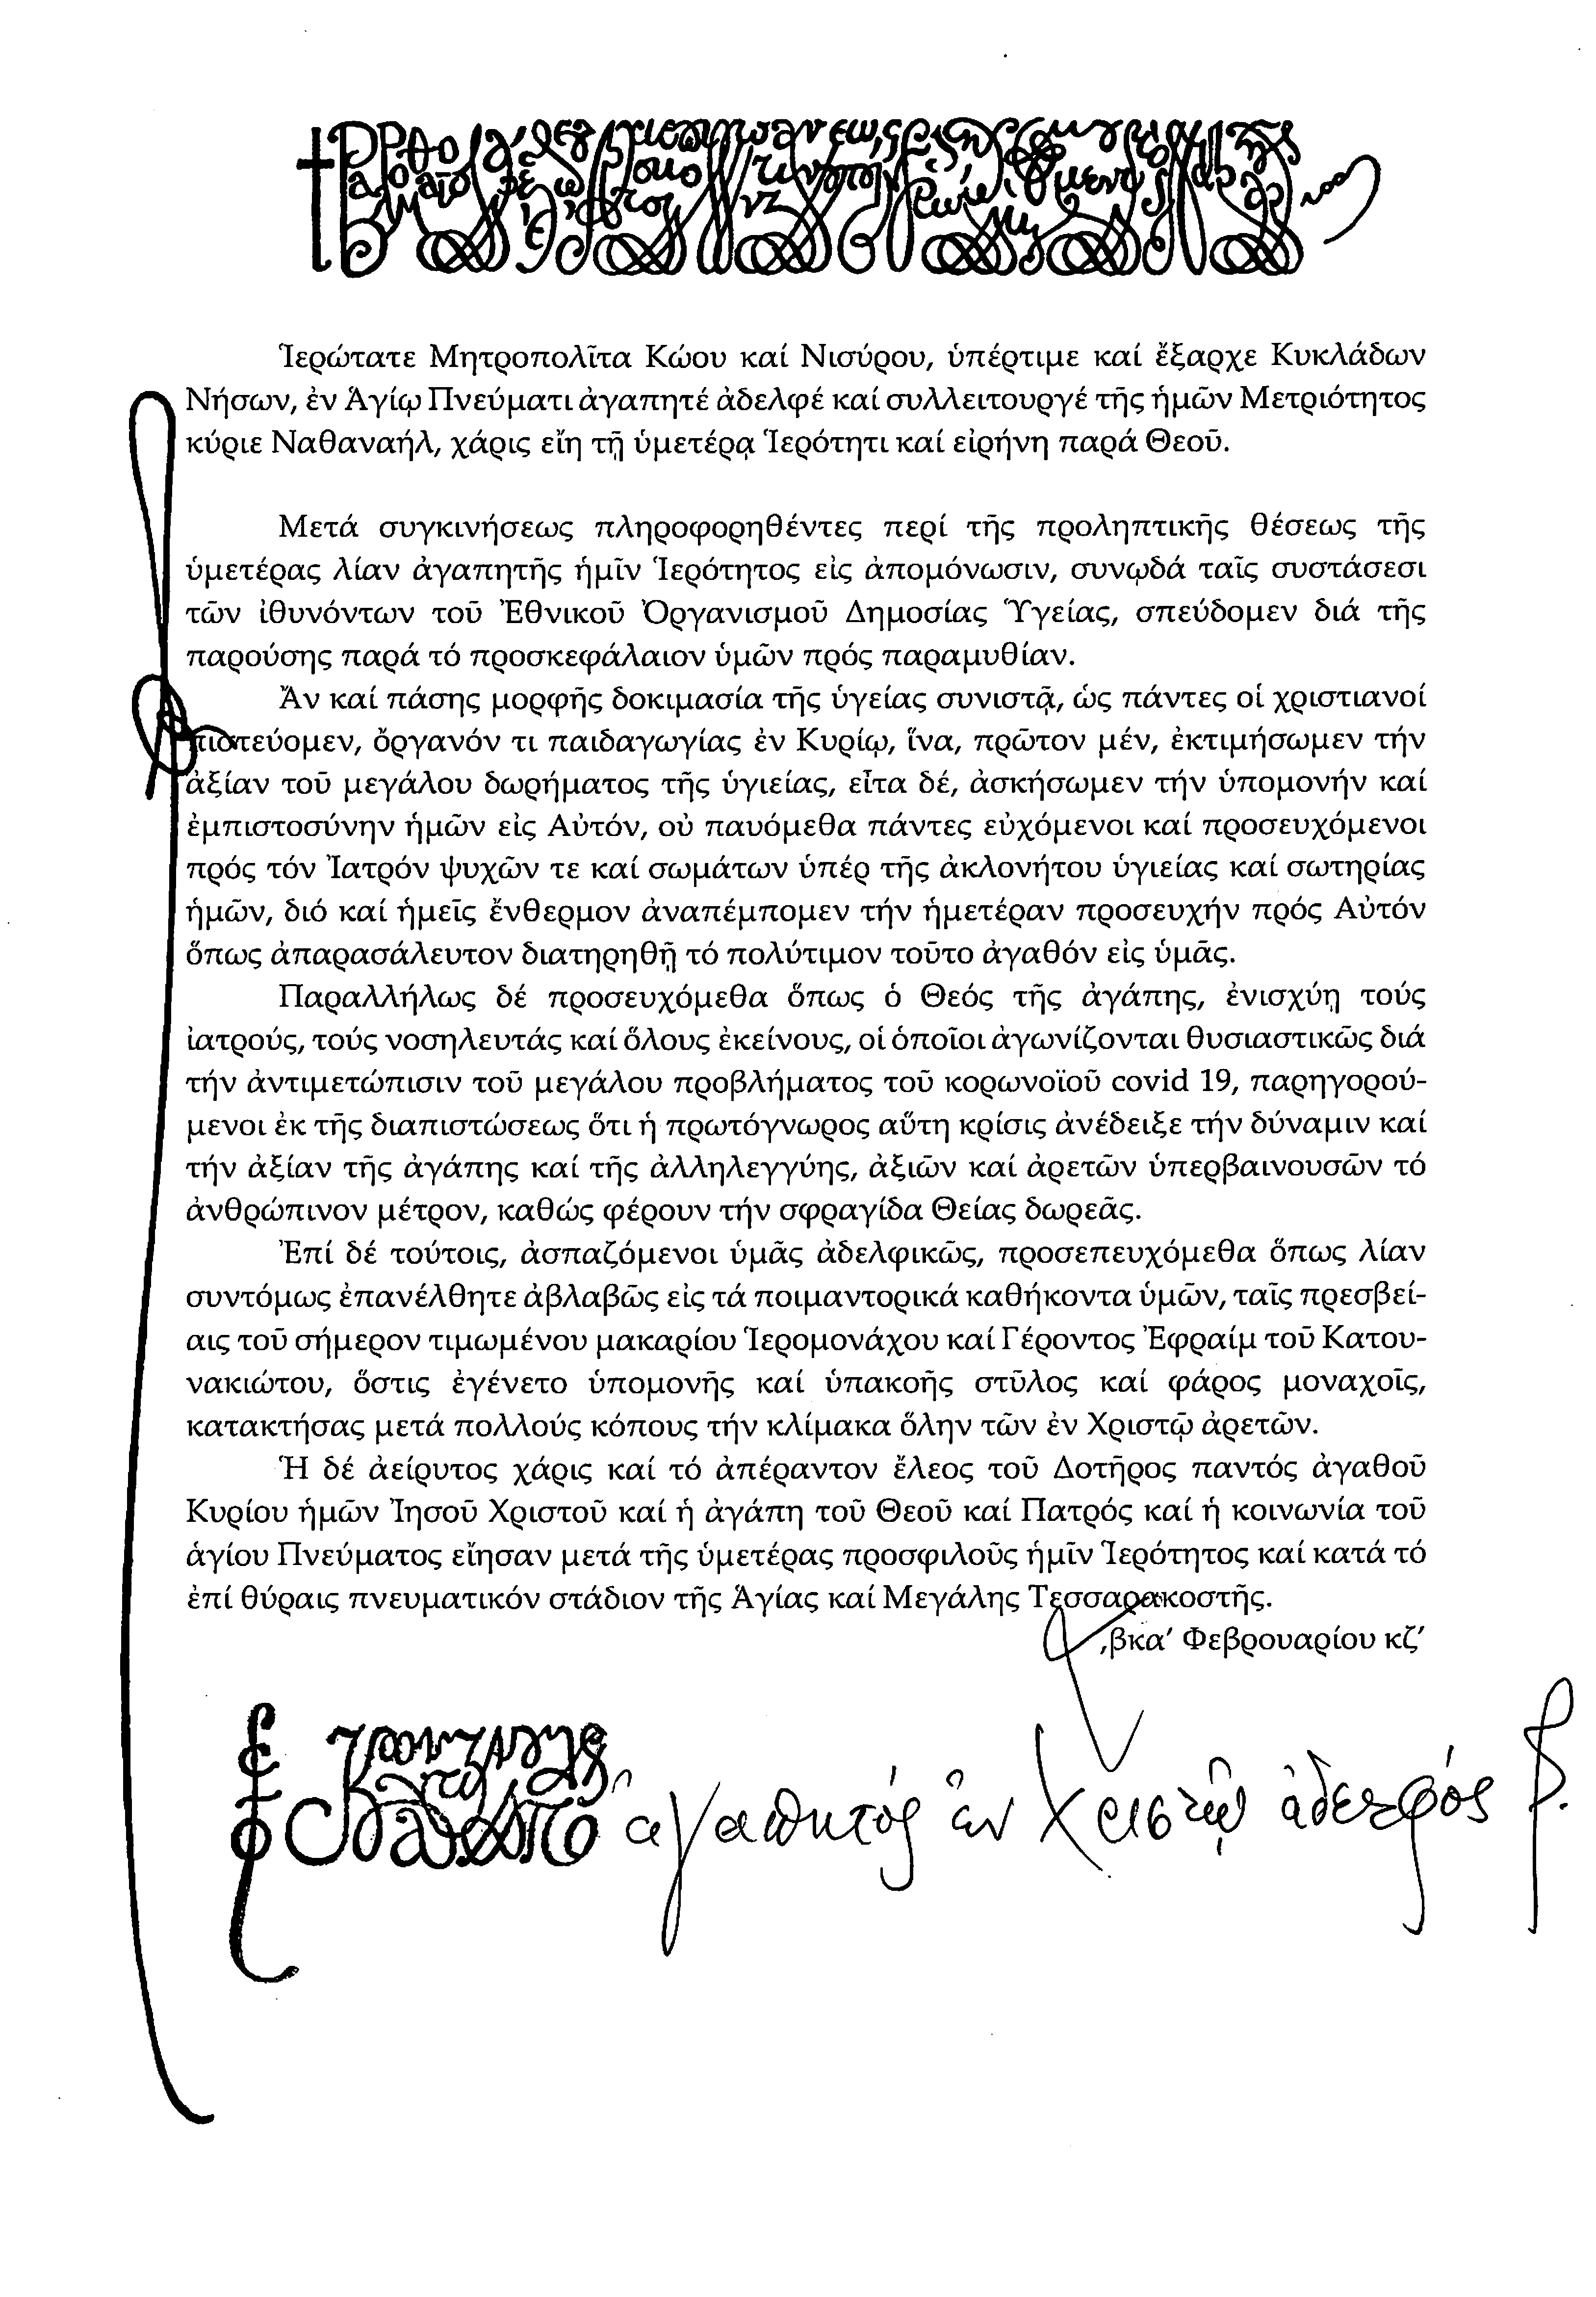 Ἱερώτατε Μητροπολῖτα Κώου καί Νισύρου, ὑπέρτιμε καί ἔξαρχε Κυκλάδων
Νήσων, ἐν Ἁγίῳ Πνεύματι ἀγαπητέ ἀδελφέ καί συλλειτουργέ τῆς ἡμῶν Μετριότητος
κύριε Ναθαναήλ, χάρις εἴη τῇ ὑμετέρᾳ Ἱερότητι καί εἰρήνη παρά Θεοῦ.
Μετά συγκινήσεως πληροφορηθέντες περί τῆς προληπτικῆς θέσεως τῆς
ὑμετέρας λίαν ἀγαπητῆς ἡμῖν Ἱερότητος εἰς ἀπομόνωσιν, συνῳδά ταῖς συστάσεσι
τῶν ἰθυνόντων τοῦ Ἐθνικοῦ Ὀργανισμοῦ Δημοσίας Ὑγείας, σπεύδομεν διά τῆς
παρούσης παρά τό προσκεφάλαιον ὑμῶν πρός παραμυθίαν.
Ἄν καί πάσης μορφῆς δοκιμασία τῆς ὑγείας συνιστᾷ, ὡς πάντες οἱ χριστιανοί
πιστεύομεν, ὄργανόν τι παιδαγωγίας ἐν Κυρίῳ, ἵνα, πρῶτον μέν, ἐκτιμήσωμεν τήν
ἀξίαν τοῦ μεγάλου δωρήματος τῆς ὑγιείας, εἶτα δέ, ἀσκήσωμεν τήν ὑπομονήν καί
ἐμπιστοσύνην ἡμῶν εἰς Αὐτόν, οὐ παυόμεθα πάντες εὐχόμενοι καί προσευχόμενοι
πρός τόν Ἰατρόν ψυχῶν τε καί σωμάτων ὑπέρ τῆς ἀκλονήτου ὑγιείας καί σωτηρίας
ἡμῶν, διό καί ἡμεῖς ἔνθερμον ἀναπέμπομεν τήν ἡμετέραν προσευχήν πρός Αὐτόν
ὅπως ἀπαρασάλευτον διατηρηθῇ τό πολύτιμον τοῦτο ἀγαθόν εἰς ὑμᾶς.
Παραλλήλως δέ προσευχόμεθα ὅπως ὁ Θεός τῆς ἀγάπης, ἐνισχύῃ τούς
ἰατρούς, τούς νοσηλευτάς καί ὅλους ἐκείνους, οἱ ὁποῖοι ἀγωνίζονται θυσιαστικῶς διά
τήν ἀντιμετώπισιν τοῦ μεγάλου προβλήματος τοῦ κορωνοϊοῦ covid 19, παρηγορού-
μενοι ἐκ τῆς διαπιστώσεως ὅτι ἡ πρωτόγνωρος αὕτη κρίσις ἀνέδειξε τήν δύναμιν καί
τήν ἀξίαν τῆς ἀγάπης καί τῆς ἀλληλεγγύης, ἀξιῶν καί ἀρετῶν ὑπερβαινουσῶν τό
ἀνθρώπινον μέτρον, καθώς φέρουν τήν σφραγίδα Θείας δωρεᾶς.
Ἐπί δέ τούτοις, ἀσπαζόμενοι ὑμᾶς ἀδελφικῶς, προσεπευχόμεθα ὅπως λίαν
συντόμως ἐπανέλθητε ἀβλαβῶς εἰς τά ποιμαντορικά καθήκοντα ὑμῶν, ταῖς πρεσβεί-
αις τοῦ σήμερον τιμωμένου μακαρίου Ἱερομονάχου καί Γέροντος Ἐφραίμ τοῦ Κατου-
νακιώτου, ὅστις ἐγένετο ὑπομονῆς καί ὑπακοῆς στῦλος καί φάρος μοναχοῖς,
κατακτήσας μετά πολλούς κόπους τήν κλίμακα ὅλην τῶν ἐν Χριστῷ ἀρετῶν.
Ἡ δέ ἀείρυτος χάρις καί τό ἀπέραντον ἔλεος τοῦ Δοτῆρος παντός ἀγαθοῦ
Κυρίου ἡμῶν Ἰησοῦ Χριστοῦ καί ἡ ἀγάπη τοῦ Θεοῦ καί Πατρός καί ἡ κοινωνία τοῦ
ἁγίου Πνεύματος εἴησαν μετά τῆς ὑμετέρας προσφιλοῦς ἡμῖν Ἱερότητος καί κατά τό
ἐπί θύραις πνευματικόν στάδιον τῆς Ἁγίας καί Μεγάλης Τεσσαρακοστῆς.
͵βκα′ Φεβρουαρίου κζ′
ἀγαπητός ἐν Χριστῷ ἀδελφός